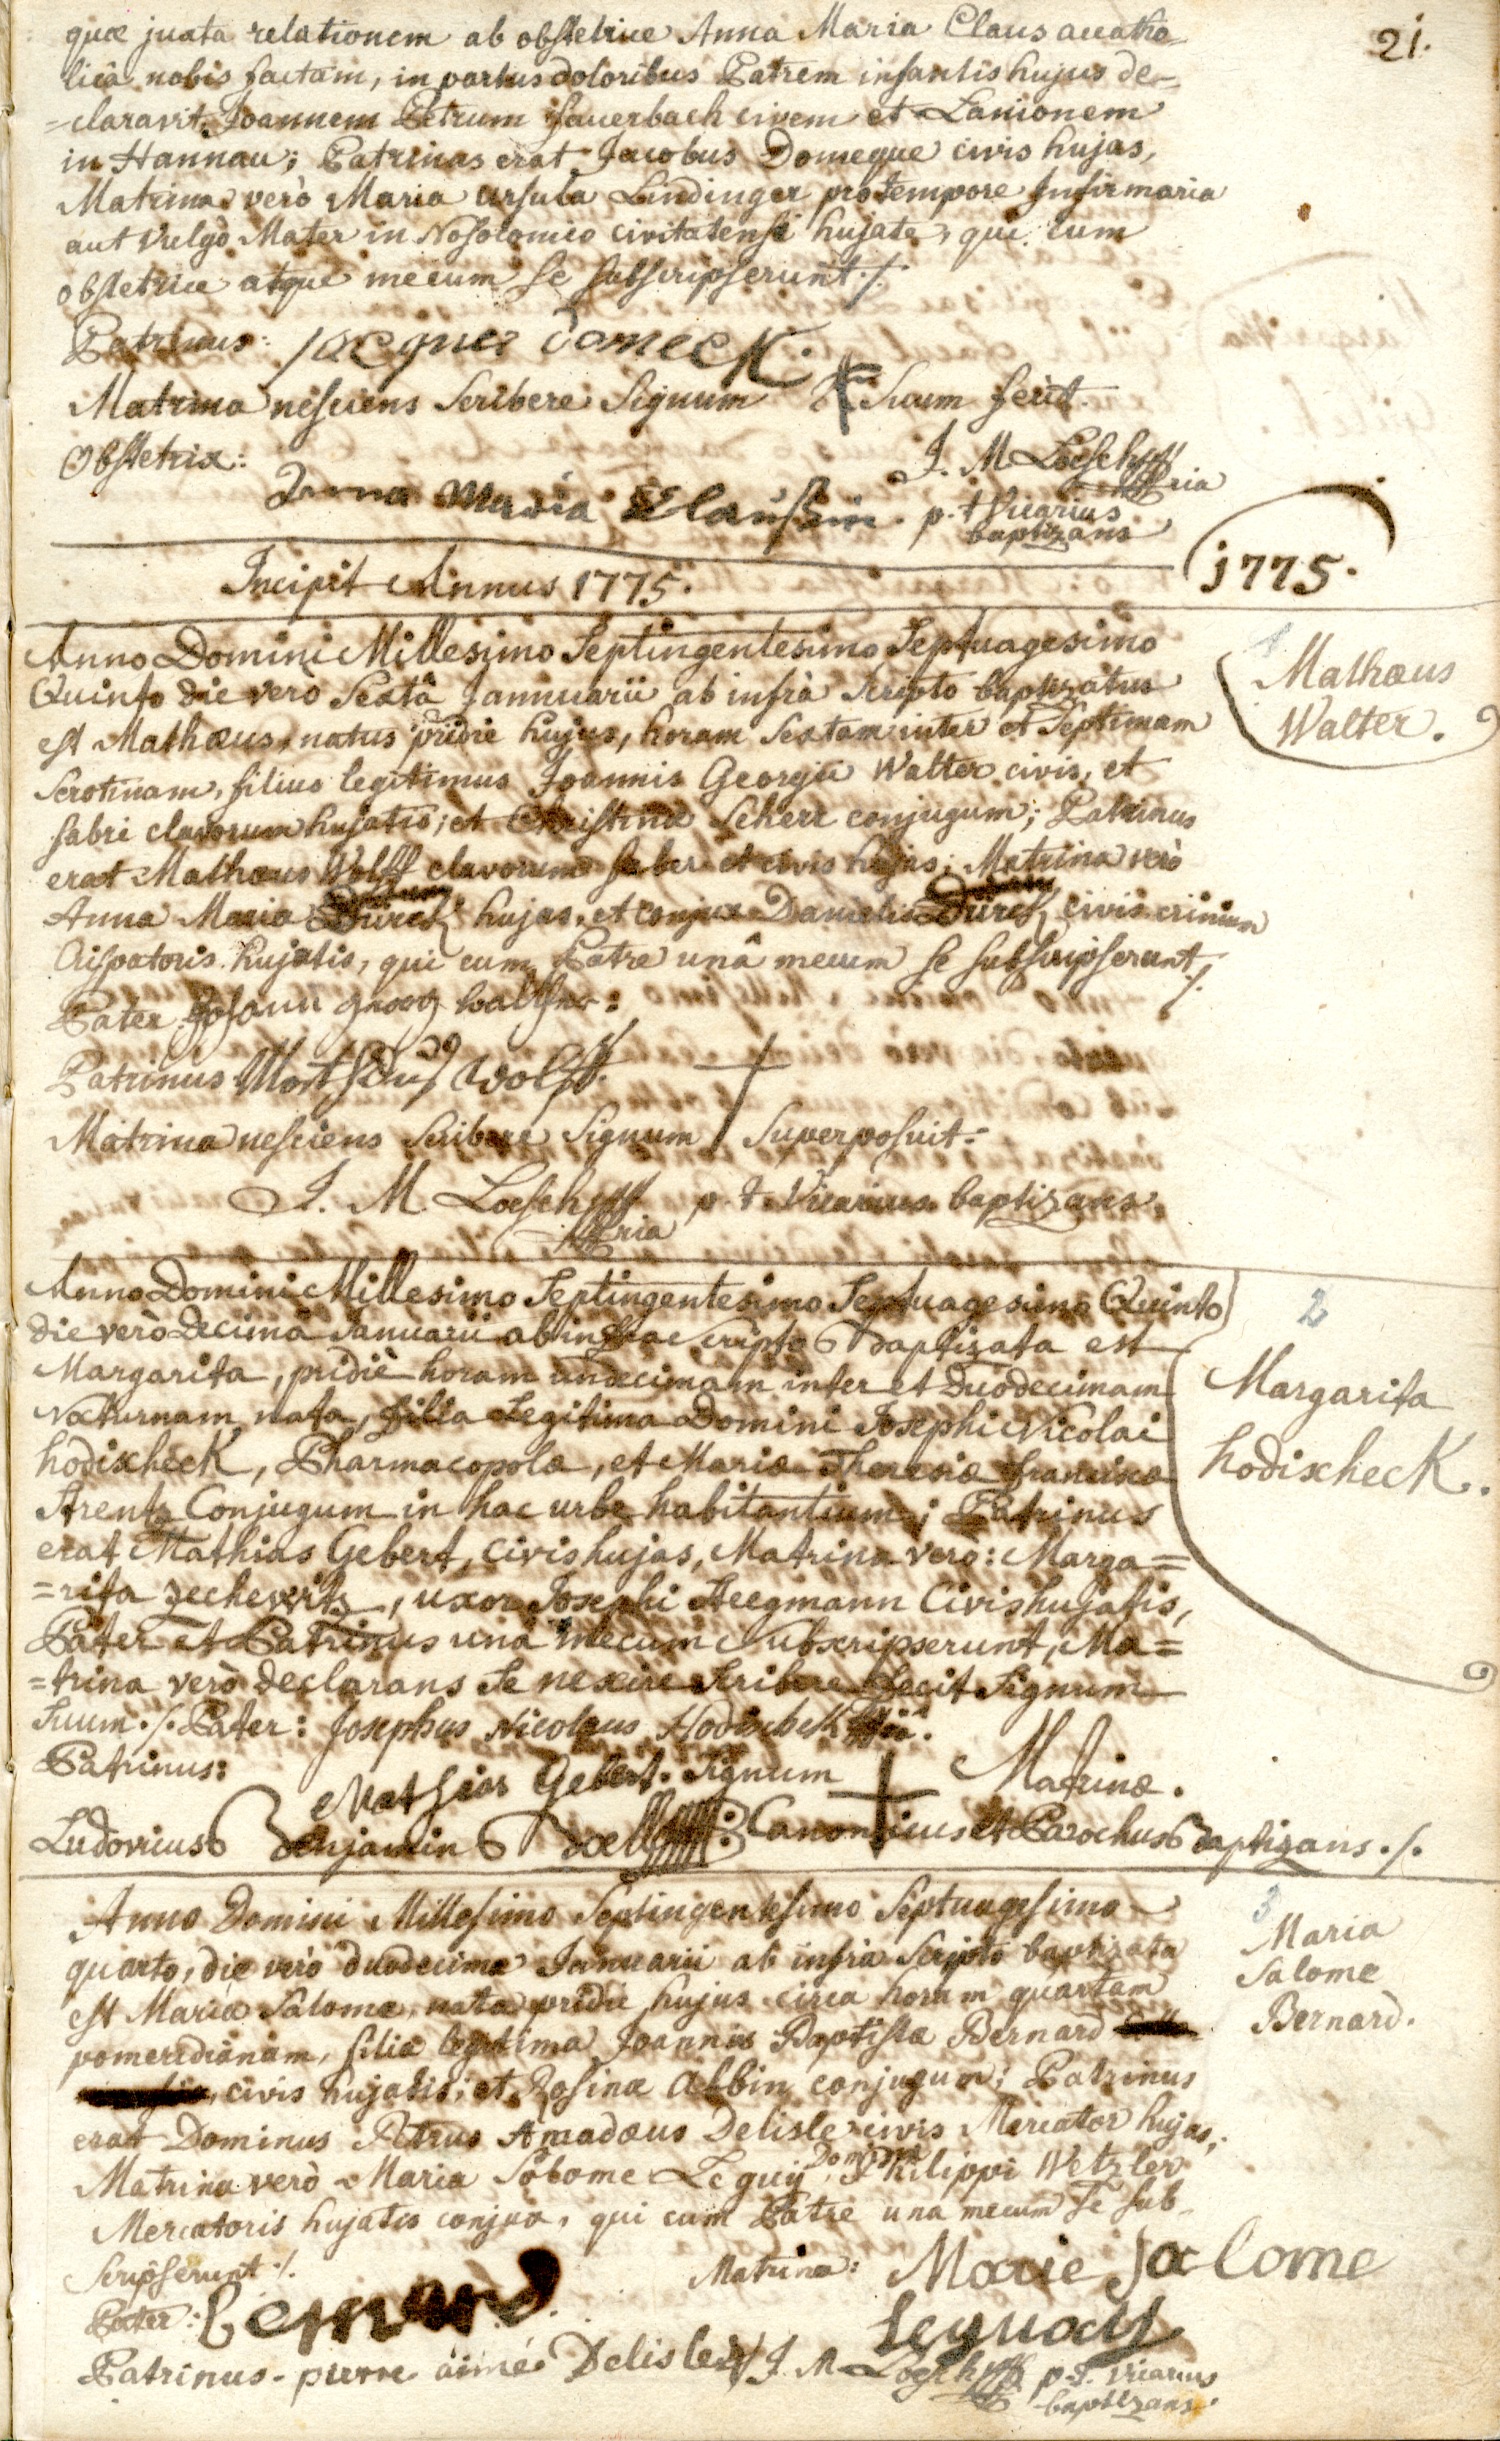 21.
quæ juxta relationem ab obstetrice Anna Maria Claus acatho-
licâ nobis factam, in partus doloribus Patrem infantis hujus de-
=claravit Joannem Petrum Sauerbach civem et Lanionem
in Hannau; Patrinus erat Jacobus Domeque civis hujas,
Matrina verò Maria Ursula Lindinger pro tempore Infirmaria
aut vulgò Mater in Nosocomio civitatensi hujate, qui cum
obstetrice atque mecum se subscripserunt ./.
Patrinus: jacques domeck.
Matrina nesciens scribere Signum Suum fecit.
Obstetrix: Anna Maria Claußin.
J. M. Loesch
p. t. Vicarius
baptizans
Incipit Annus 1775.
1775.
Anno Domini Millesimo Septingentesimo Septuagesimo
Quinto die verò Sextâ Jannuarii ab infrà scripto baptizatus
est Mathæus, natus pridie hujus, horam sextam inter et Septimam
Serotinam, filius legitimus Joannis Georgii Walter civis, et
fabri clavorum hujatis; et Christinæ Scherr conjugum; Patrinus
erat Mathæus Wolff clavorum faber et civis hujas; Matrina verò
Anna Maria hujas, et conjux Danielis civis crinium
Crispatoris hujatis, qui cum Patre unâ mecum se subscripserunt ./.
Pater Johann Georg Walther:
Patrinus Matthäus Wolff.
Matrina nesciens scribere Signum Superposuit.
J. M. Loesch p. t. Vicarius baptizans.
1
Mathæus
Walter.
Anno Domini Millesimo Septingentesimo Septuagesimo Quinto
die verò Decimâ Januarii ab infra Scripto Baptizata est
Margarita, pridiè horam undecimam inter et Duodecimam
Nocturnam nata, filia Legitima Domini Josephi Nicolai
hodischeck, Pharmacopolæ, et Mariæ Theresiæ franciscæ
Arentz Conjugum in hac urbe habitantium; Patrinus
erat Mathias Gebert, Civis hujas, Matrina verò: Marga=
=rita Zechewitz, uxor Josephi Heegmann Civis hujatis,
Pater et Patrinus unà mecum Subscripserunt, Ma=
=trina verò declarans Se nescire Scribere fecit Signum
Suum ./. Pater: Josephus Nicolaus Hodischeck
Patrinus: Mathias Gebert. Signum Matrinæ.
Ludovicus Benjamin Canonicus et Parochus Baptizans ./.
2
Margarita
hodischeck.
Anno Domini Millesimo Septingentesimo Septuagesimo
quarto, die verò duodecima Januarii ab infrà Scripto baptizata
est Maria Salome, nata pridie hujus circa horam quartam
pomeridianam, filia legitima Joannis Baptistæ Bernard
civis hujatis; et Rosinæ Albin conjugum; Patrinus
erat Dominus Petrus Amadæus Delisle civis Mercator hujas,
Matrina verò Maria Salome Leguÿ Domini Philippi Wetzler
Mercatoris hujatis conjux, qui cum Patre una mecum se sub-
scripserunt ./.
Matrina: Marie Salome
Leguay
Pater: Bernard
Patrinus - pierre aimé Delisle J. M. Loesch p. t. Vicarius
baptizans.
3
Maria
Salome
Bernard.